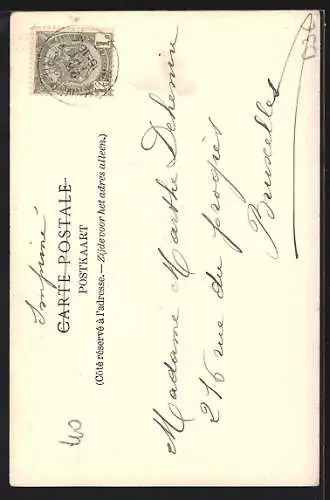 Imprimé
CARTE POSTALE
POSTKAART
(Côté réservé à l'adresse. — Zijde voor het adres alleen.)
Madame Marthe Dehenin
216 rue du progrès
Bruxelles
40